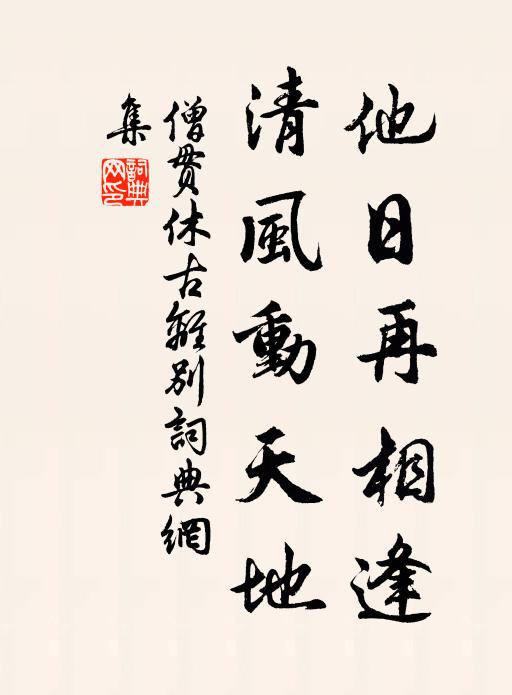 他日再相逢
清風動天地
僧貫休古離別詞典網
集
詞典網印